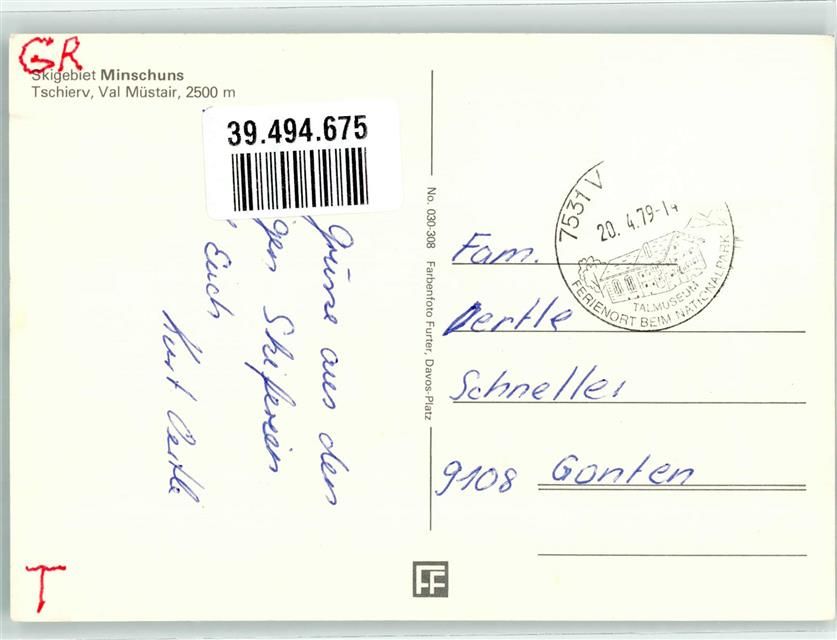 GR
Skigebiet Minschuns
Tschierv, Val Müstair, 2500 m
39.494.675
Grüsse aus den
Skiferien
Euch
Kurt Oertle
No. 030-308 Farbenfoto Furter, Davos-Platz
7531 V
20. 4.79-14
TALMUSEUM
FERIENORT BEIM NATIONALPARK
Fam.
Oertle
Scheller
9108 Gonten
T
FF